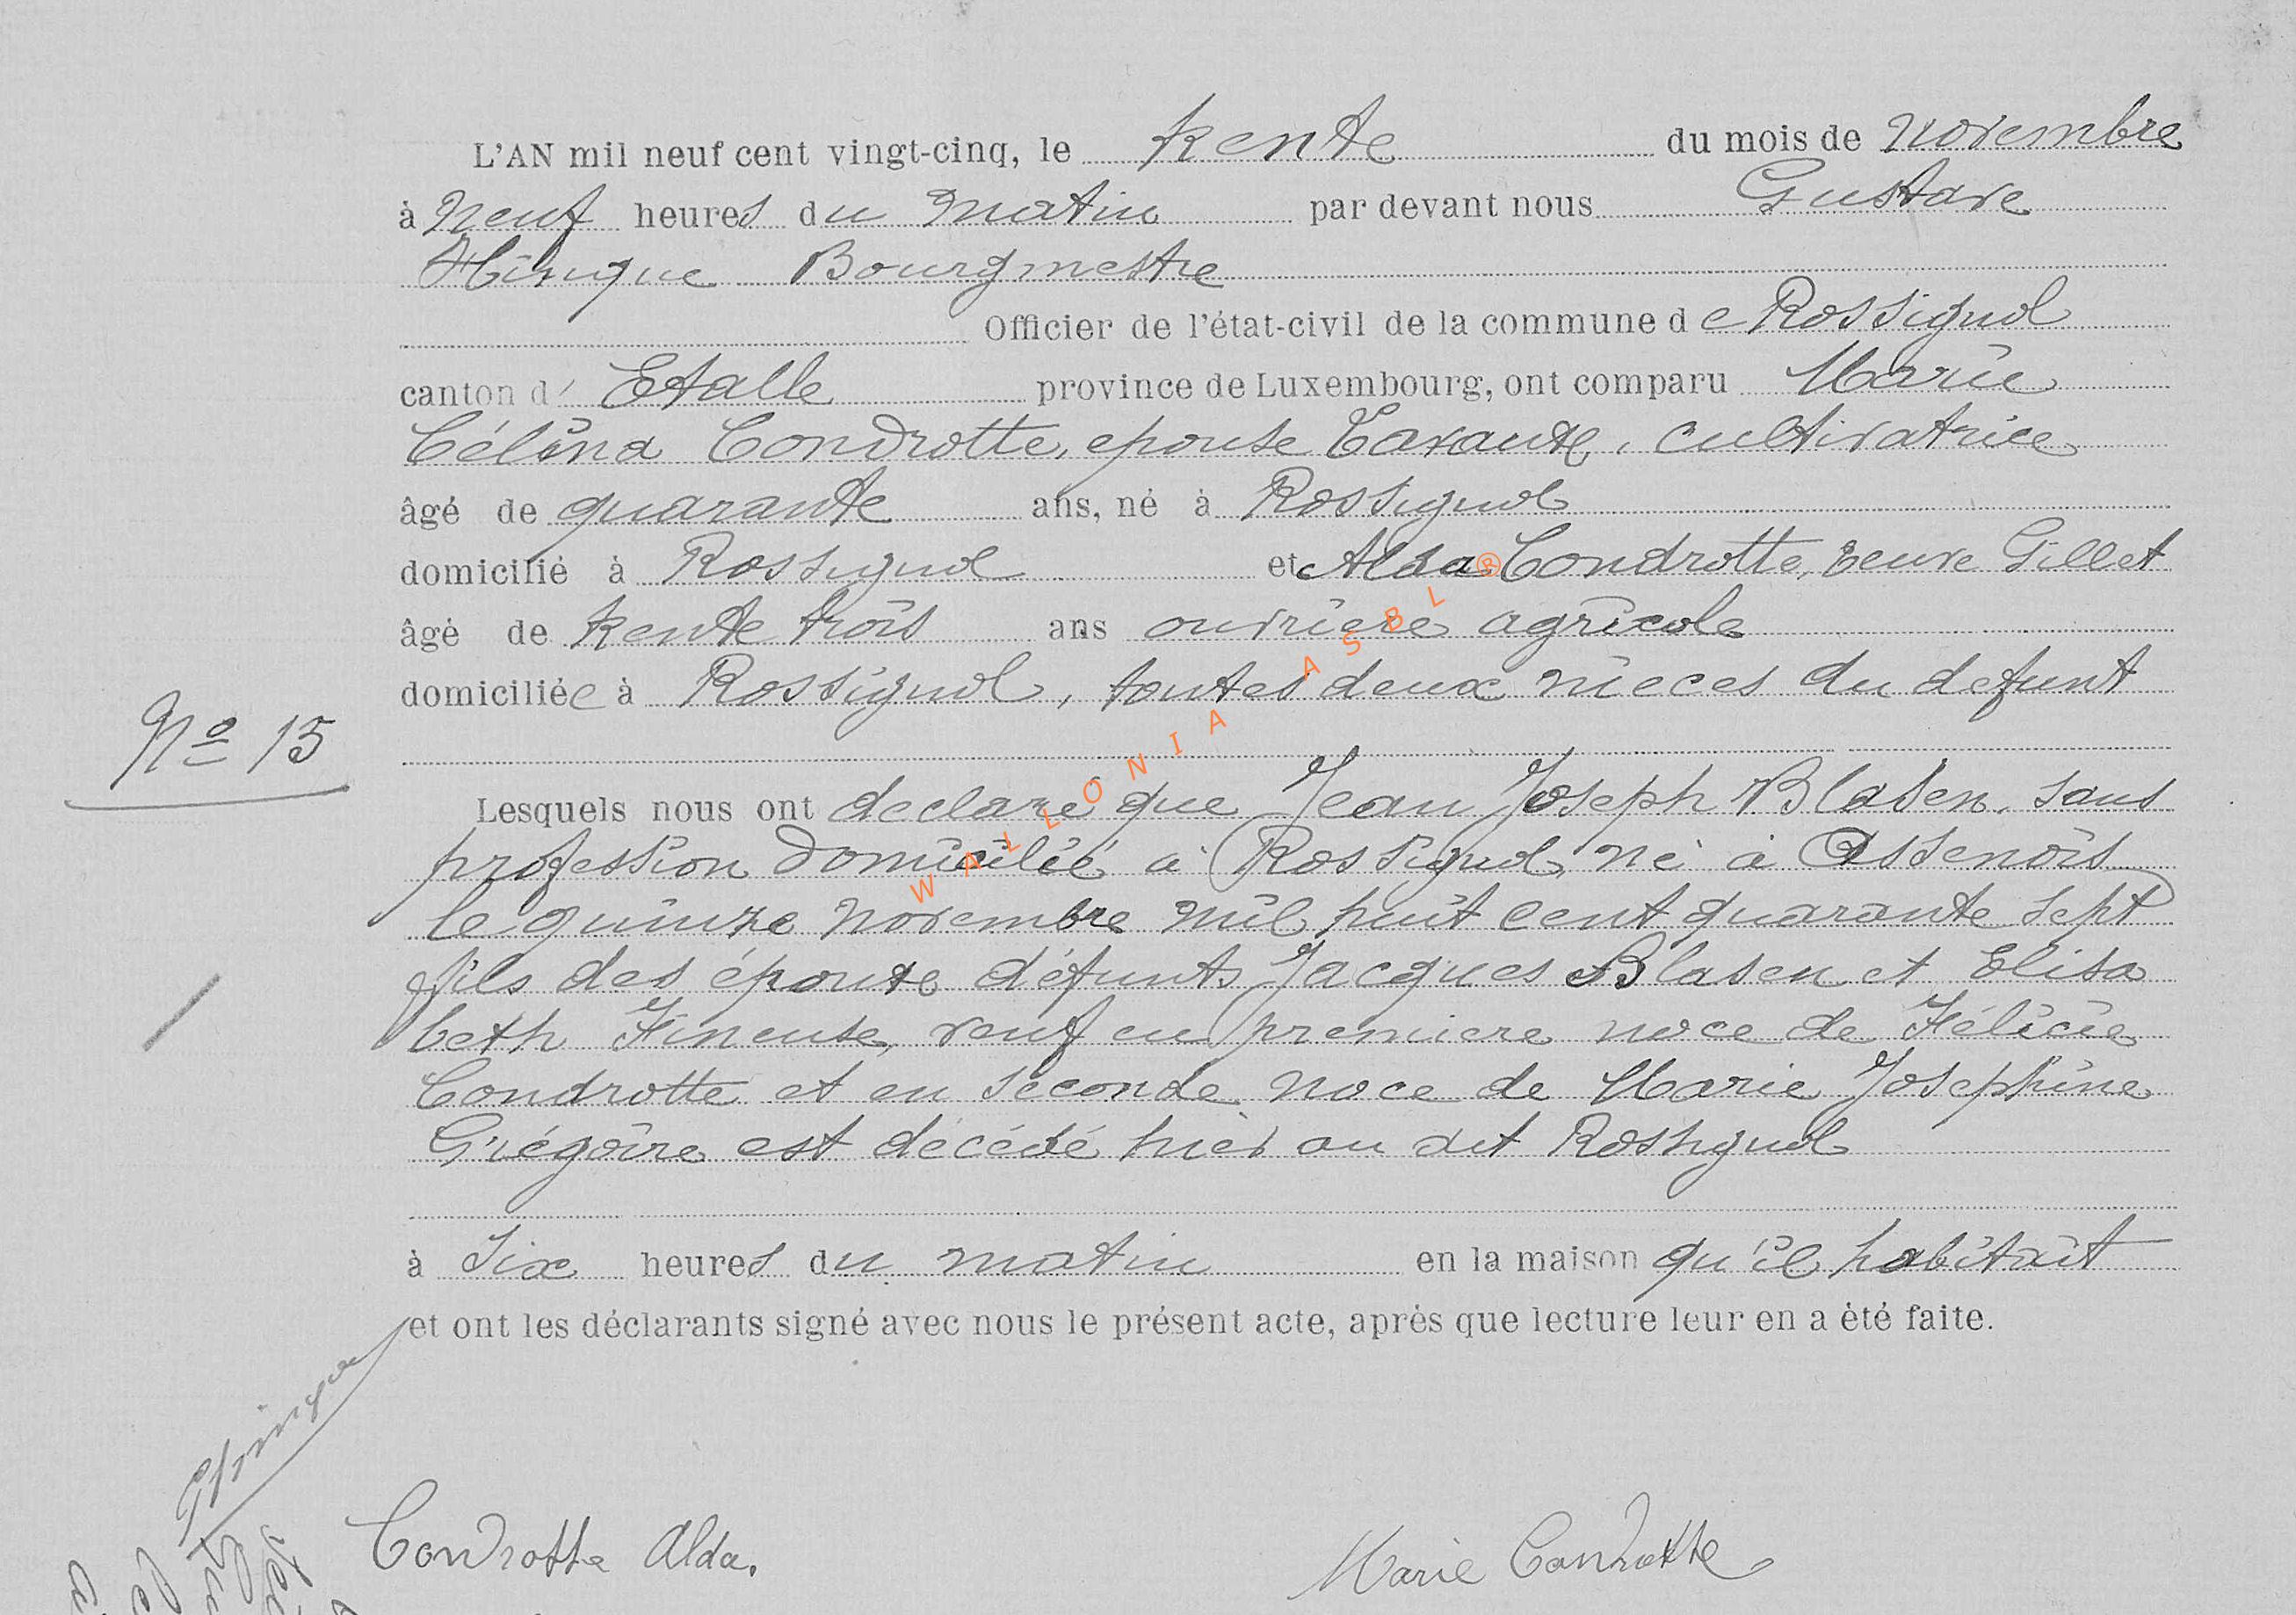 L'AN mil neuf cent vingt-cinq, le trente du mois de Novembre
à Neuf heures du matin par devant nous Gustave
Hinque Bourgmestre
Officier de l'état-civil de la commune de Rossignol
canton d' Etalle province de Luxembourg, ont comparu Marie
Célina Condrotte, epouse Tavante, cultivatrice
âgé de quarante ans, né à Rossignol
domicilié à Rossignol et Alda Condrotte, veuve Gillet
âgé de trente trois ans ouvrière agricole
domiciliée à Rossignol, toutes deux nièces du defunt
Nº 15
Lesquels nous ont declaré que Jean Joseph Blasen, sans
profession domicilié à Rossignol, né à Assenois
le quinze novembre mil huit cent quarante sept
fils des époux défunts Jacques Blasen et Elisa
beth Fineuse, veuf en premiere noce de Félicie
Condrotte et en seconde noce de Marie Josephine
Grégoire est décédé hier au dit Rossignol
à six heures du matin en la maison qu'il habitait
et ont les déclarants signé avec nous le présent acte, après que lecture leur en a été faite.
Hinque
Condrotte Alda. Marie Condrotte
WALLONIA ASBL ®